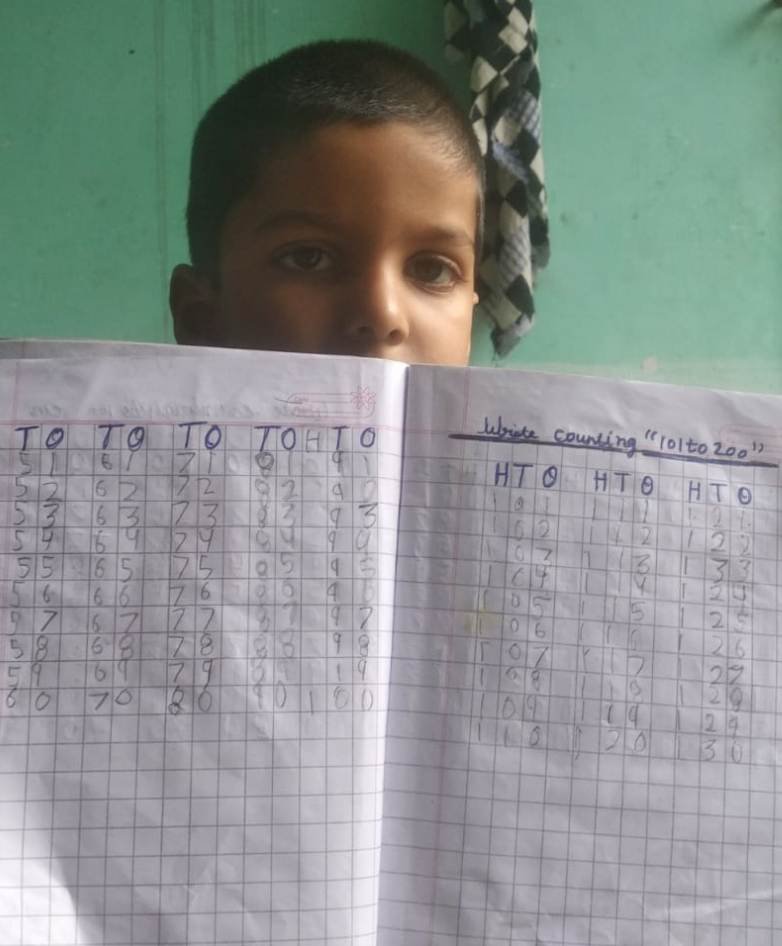 T O T O T O T O H T O
51 61 71 81 91
52 62 72 82 92
53 63 73 83 93
54 64 74 84 94
55 65 75 85 95
56 66 76
57 67 77 87 97
58 68 78 88 98
59 69 79 19
60 70 80 90 100
Write counting "101 to 200"
H T O H T O H T O
101 111 121
102 112 122
103 113 133
104 114 124
105 115 125
106 116 126
107 117 127
108 118 128
109 119 129
110 120 130